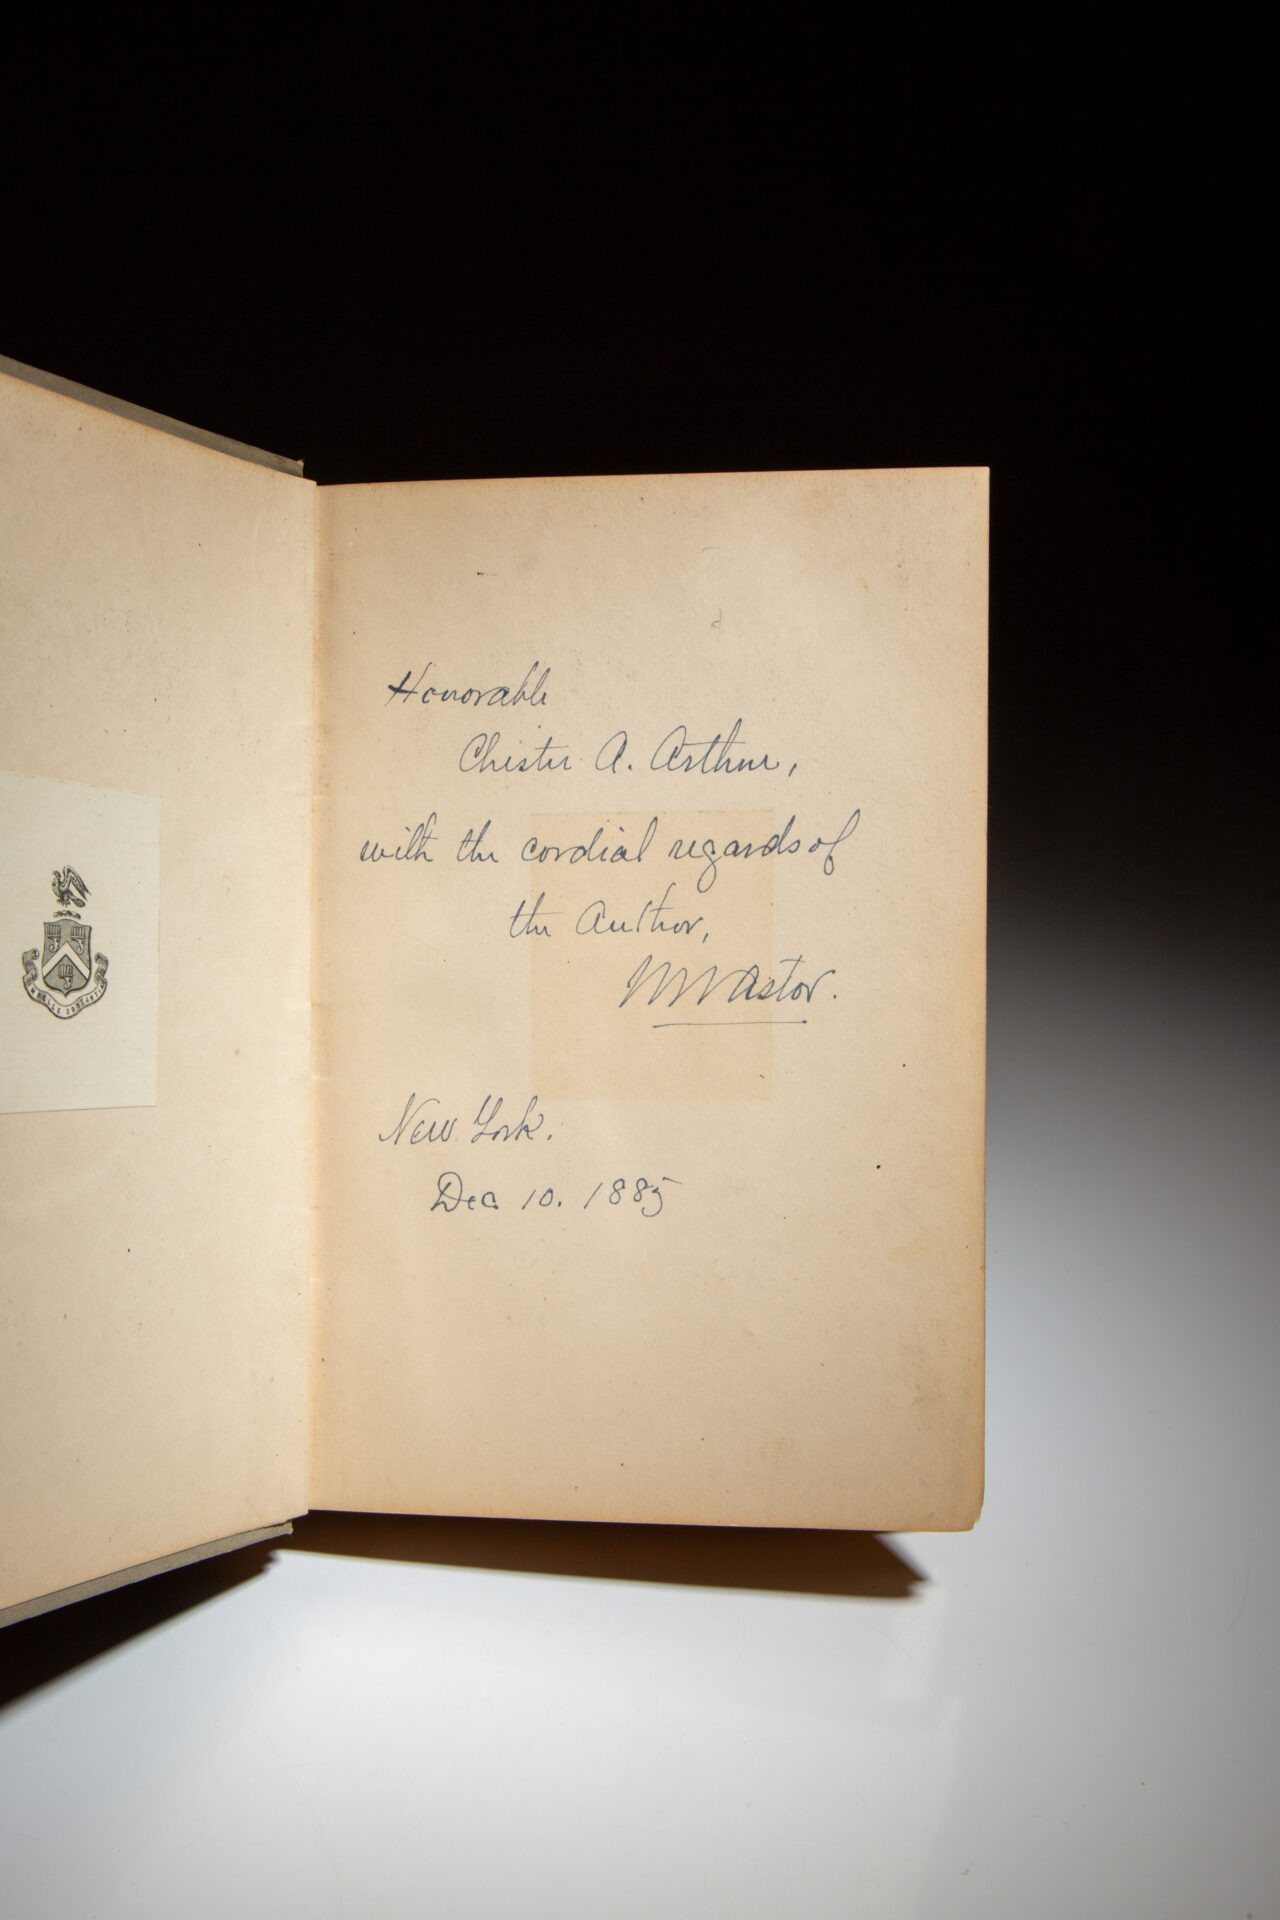 Honorable
Chester A. Arthur,
with the cordial regards of
the Author,
WWAstor.
New York.
Dec 10. 1885